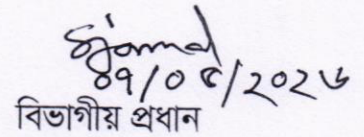 ০৭/০৫/২০২৬
বিভাগীয় প্রধান